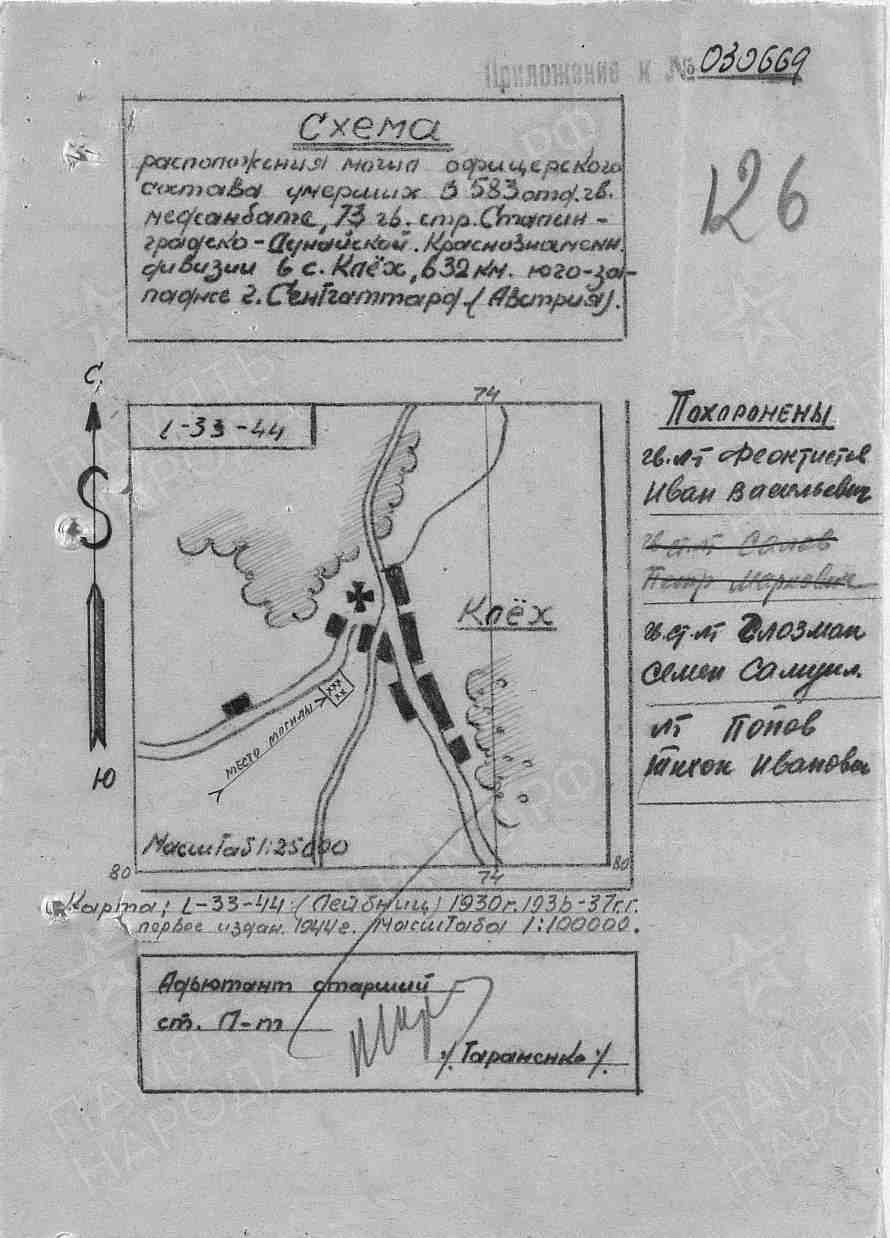 Приложение к № 030669
126
Схема
расположения могил офицерского
состава умерших в 583 отд. гв.
медсанбате, 73 гв. стр. Сталин-
градско-Дунайской. Краснознаменн.
дивизии в с. Клёх, в 32 км. юго-за-
паднее г. Сентготтард. (Австрия).
С.
Ю
L-33-44
74
Клёх
МЕСТО МОГИЛЫ
Масштаб 1:25000
80
74
80
Похоронены
гв. лт Феоктистов
Иван Васильевич
гв. ст. лт Салов
Петр Маркович
гв. ст. лт Глозман
Семен Самуил.
лт Попов
Тихон Иванович
Карта; L-33-44 (Лейбниц) 1930г. 1936-37г.г.
первое издан. 1944г. Масштаба 1:100000.
Адьютант старший
ст. Л-т
/. Тараненко /.
ПАМЯТЬ
НАРОДА
ПАМЯТЬ
НАРОДА